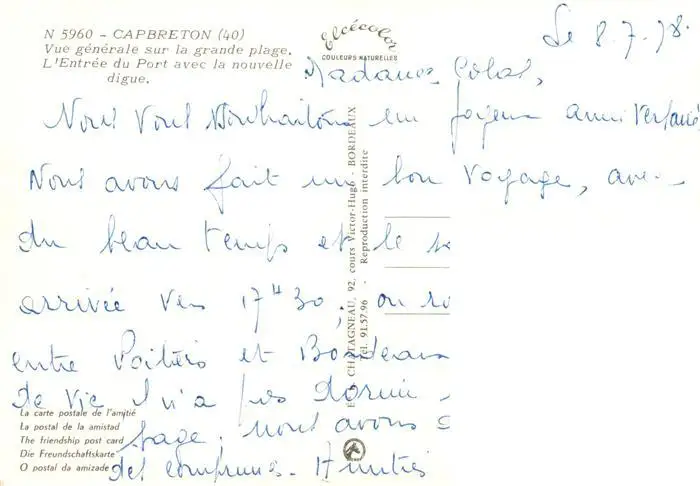 N 5960 - CAPBRETON (40)
Vue générale sur la grande plage.
L'Entrée du Port avec la nouvelle
digue.
Elcécolor
COULEURS NATURELLES
Le 8.7.78.
Madame Colas,
Nous Vous Souhaitons un joyeux anniversaire
Nous avons fait un bon voyage, avec
du beau temps et le
arrivée vers 17H30, on
entre Poitiers et Bordeaux
de Vie n'a pas dormi
page. nous avons
des comprimés. Amitiés
CHATAGNEAU, 92, cours Victor-Hugo - BORDEAUX
Tél. 91.57.96 - Reproduction interdite
La carte postale de l'amitié
La postal de la amistad
The friendship post card
Die Freundschaftskarte
O postal da amizade